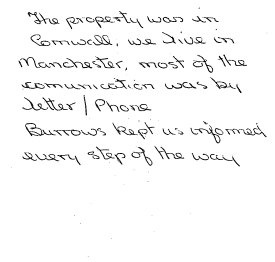 The property was in
Cornwall, we live in
Manchester, most of the
comunication was by
letter / Phone
Burrows kept us informed
every step of the way